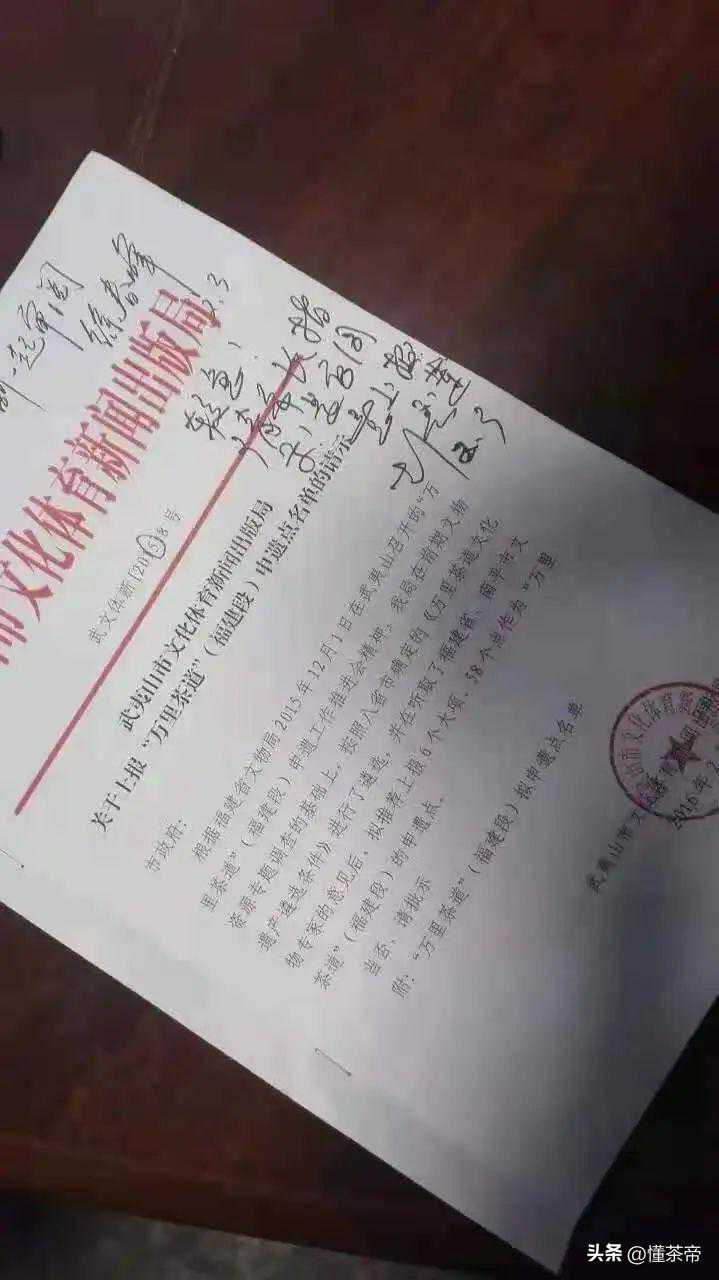 一起审阅
市文化体育新闻出版局
武文体新〔2015〕8号
武夷山市文化体育新闻出版局
关于上报“万里茶道”（福建段）申遗点名单的请示
市政府：
根据福建省文物局2015年12月1日在武夷山召开的“万
里茶道”（福建段）申遗工作推进会精神，我局在前期文物
资源专题调查的基础上，按照八省市确定的《万里茶道文化
遗产遴选条件》进行了遴选，并在听取了福建省、南平市文
物专家的意见后，拟推荐上报6个大项、58个点作为“万里
茶道”（福建段）的申遗点。
当否，请批示
附：“万里茶道”（福建段）拟申遗点名单
武夷山市文
2016年2
头条 @懂茶帝